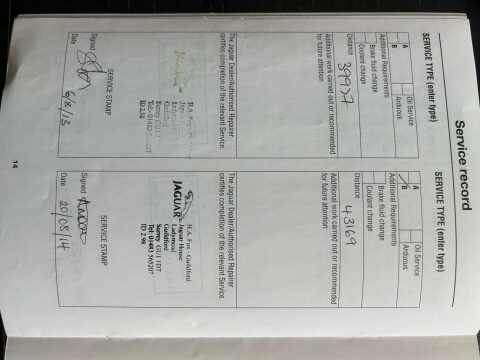 Service record
SERVICE TYPE (enter type)
A
Oil Service
B
Arduous
Additional Requirements
Brake fluid change
Coolant change
Distance 39927
Additional work carried out or recommended
for future attention
The Jaguar Dealer/Authorised Repairer
certifies completion of the relevant Service.
H.A. Fox
Guildford
Surrey GU1
ID 2.98.
SERVICE STAMP
Signed
Date 6/8/13
SERVICE TYPE (enter type)
A
Oil Service
B
Arduous
Additional Requirements
Brake fluid change
Coolant change
Distance 43169
Additional work carried out or recommended
for future attention
The Jaguar Dealer/Authorised Repairer
certifies completion of the relevant Service.
H.A. Fox - Guildford
Jaguar House
Ladymead
Guildford
Surrey GU1 1DT
Tel: 01483 565207
ID 2.98.
JAGUAR
SERVICE STAMP
Signed
Date 20/08/14
14